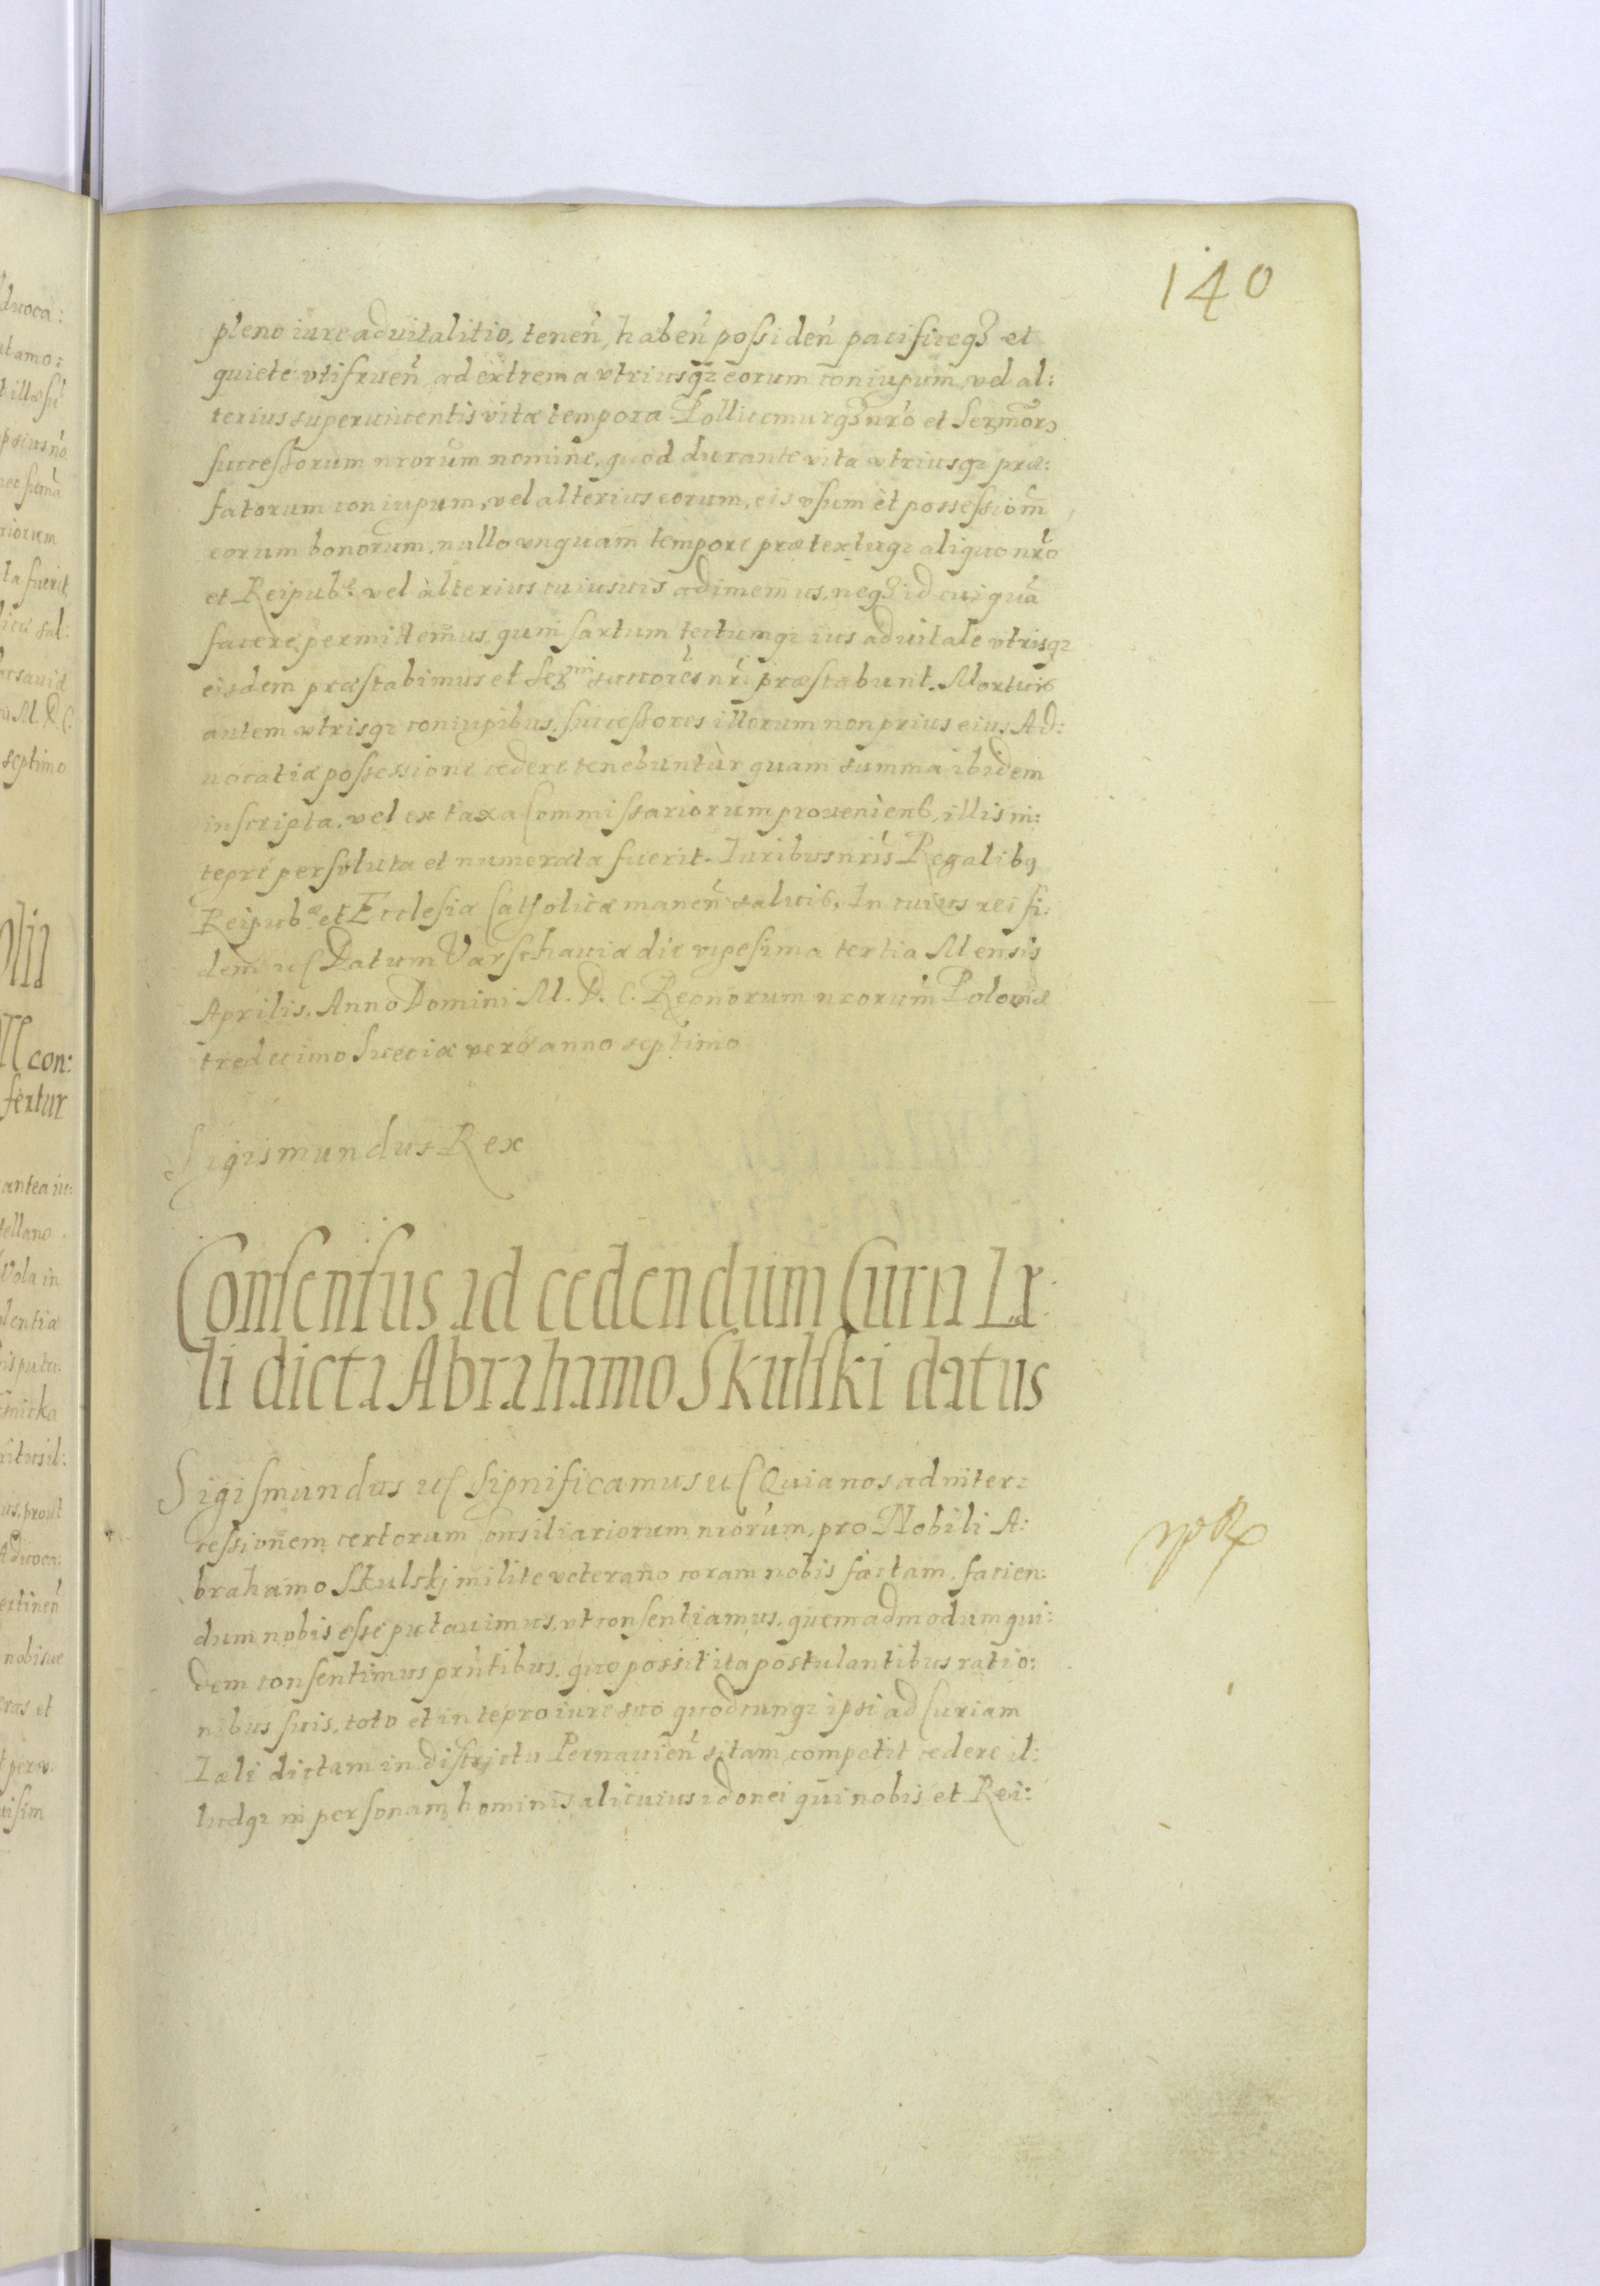 140
pleno iure aduitalitio, tenen̄, haben̄ possiden̄ pacificeq₃ et
quiete vtifruen̄, ad extrema vtriusq₃ eorum coniugum, vel al:
terius superuiuentis vitæ tempora Pollicemurq₃ nr̄o et Serm̄or
successorum nrorum nomine, quod durante vita vtriusq₃ præ:
fatorum coniugum, vel alterius eorum, eis vsum et possessiom̄
eorum bonorum, nullo vnquam tempore prætextuq₃ aliquo nr̄o
et Reipub. vel alterius cuiusuis adimemus, neq₃ id cuiquā
facere permittemus, quin sartum tectumq₃ ius aduitale vtrisq₃
eisdem præstabimus et Ser^mi succores nr̄i præstabunt. Mortuis
autem vtrisq₃ coniugibus, successores illorum non prius eius Ad:
uocatiæ possessione cedere tenebuntur quam summa ibidem
inscripta, vel ex taxa Commissariorum proueniens, illis in:
tegre persoluta et numerata fuerit. Iuribus nr̄is Regalibq
Reipub. et Ecclesiæ Catholicæ manen̄ saluis. In cuius rei fi:
dem etc Datum Varschauiæ die vigesima tertia Mensis
Aprilis. Anno Domini M. D. C. Regnorum nrorum Poloniæ
tredecimo Sueciæ vero anno septimo
Sigismundus Rex
Consensus ad cedendum Curia Ix
li dicta Abrahamo Skulski datus
Sigismundus etc Significamus etc Quia nos ad inter:
cessionem certorum Consiliariorum nrorum, pro Nobili A:
brahamo Skulskj milite veterano coram nobis factam, facien:
dum nobis esse putauimus, vt consentiamus, quemadmodum qui:
dem consentimus prn̄tibus, quo possit ita postulantibus ratio:
nibus suis, toto et integro iure suo quodcunq₃ ipsi ad Curiam
Iæli dictam in districtu Pernauien̄ sitam competit cedere il:
ludq₃ in personam hominis alicuius idonei qui nobis et Rei: